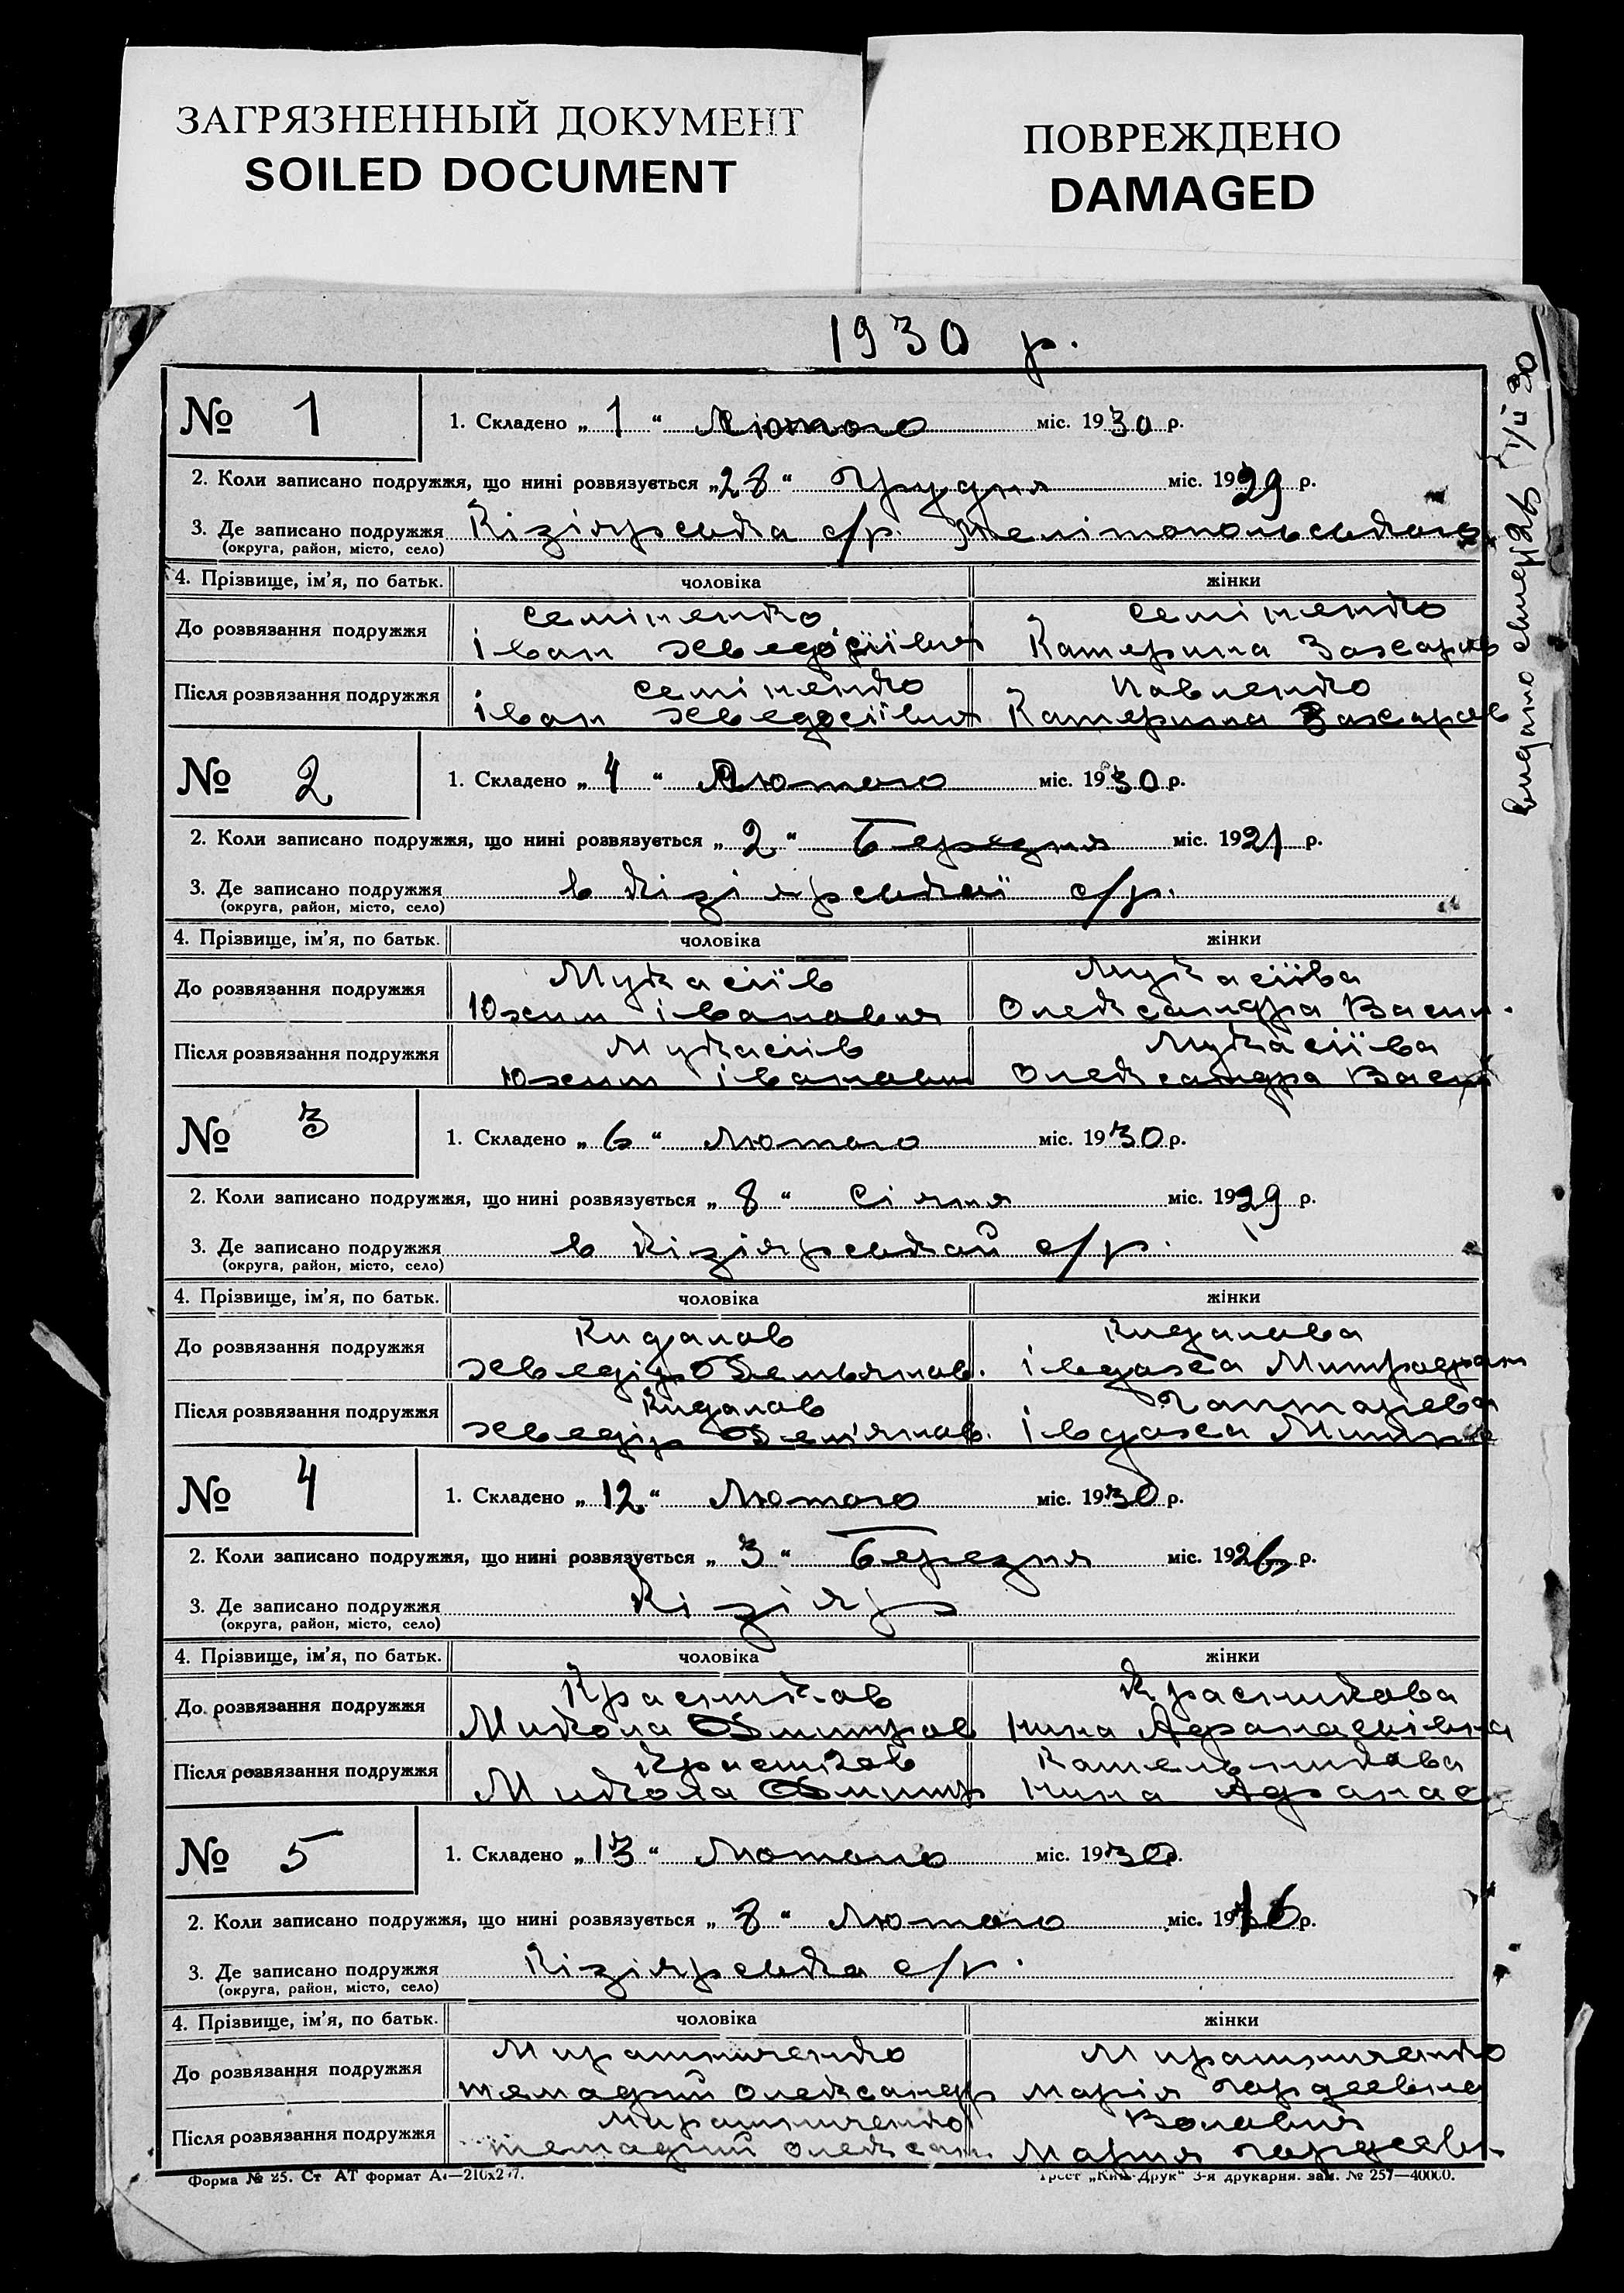 ЗАГРЯЗНЕННЫЙ ДОКУМЕНТ
SOILED DOCUMENT
ПОВРЕЖДЕНО
DAMAGED
1930 р.
№ 1
1. Складено „ 1 “ Лютого міс. 1930 р.
2. Коли записано подружжя, що нині розвязується „28“ Грудня міс. 1929 р.
3. Де записано подружжя Кізіярська с/р. Мелітопольського
(округа, район, місто, село)
4. Прізвище, ім'я, по батьк. чоловіка жінки
До розвязання подружжя
Семіненко
Іван Хведосіївич
Семіненко
Катерина Захарів
Після розвязання подружжя
Семіненко
Іван Хведосіївич
Павленко
Катерина Захарів
видано
№ 2
1. Складено „ 4 “ Лютого міс. 1930 р.
2. Коли записано подружжя, що нині розвязується „ 2 “ Березня міс. 1921 р.
3. Де записано подружжя в Кізіярській с/р.
(округа, район, місто, село)
4. Прізвище, ім'я, по батьк. чоловіка жінки
До розвязання подружжя
Мукасіїв
Юхим Іванович
Мукасіїва
Олександра Васил.
Після розвязання подружжя
Мукасіїв
Юхим Іванович
Мукасіїва
Олександра Васил
№ 3
1. Складено „ 6 “ Лютого міс. 1930 р.
2. Коли записано подружжя, що нині розвязується „ 8 “ Січня міс. 1929 р.
3. Де записано подружжя в Кізіярській с/р.
(округа, район, місто, село)
4. Прізвище, ім'я, по батьк. чоловіка жінки
До розвязання подружжя
Кидалов
Хведір Демьянов.
Кидалова
Івдоха Митрофан
Після розвязання подружжя
Кидалов
Хведір Дем'янов.
Івдоха Митро
№ 4
1. Складено „ 12 “ Лютого міс. 1930 р.
2. Коли записано подружжя, що нині розвязується „ 3 “ Березня міс. 1926 р.
3. Де записано подружжя Кізіяр
(округа, район, місто, село)
4. Прізвище, ім'я, по батьк. чоловіка жінки
До розвязання подружжя
Красников
Микола Дмитров
Красникова
Нина Афанасиівна
Після розвязання подружжя
Красников
Микола Дмитр
Котельникова
Нина Афанас
№ 5
1. Складено „ 13 “ Лютого міс. 1930 р.
2. Коли записано подружжя, що нині розвязується „ 8 “ Лютого міс. 1916 р.
3. Де записано подружжя Кізіярська с/р.
(округа, район, місто, село)
4. Прізвище, ім'я, по батьк. чоловіка жінки
До розвязання подружжя
Мирошниченко
Олександр
Мирошниченко
Марія Гордеевна
Після розвязання подружжя
Мирошниченко
Олександ.
Мария Гордеевн
Форма № 25. Ст. АТ формат А4—210х297.
Трест „Київ-Друк“ 3-я друкарня. зам. № 257—40000.